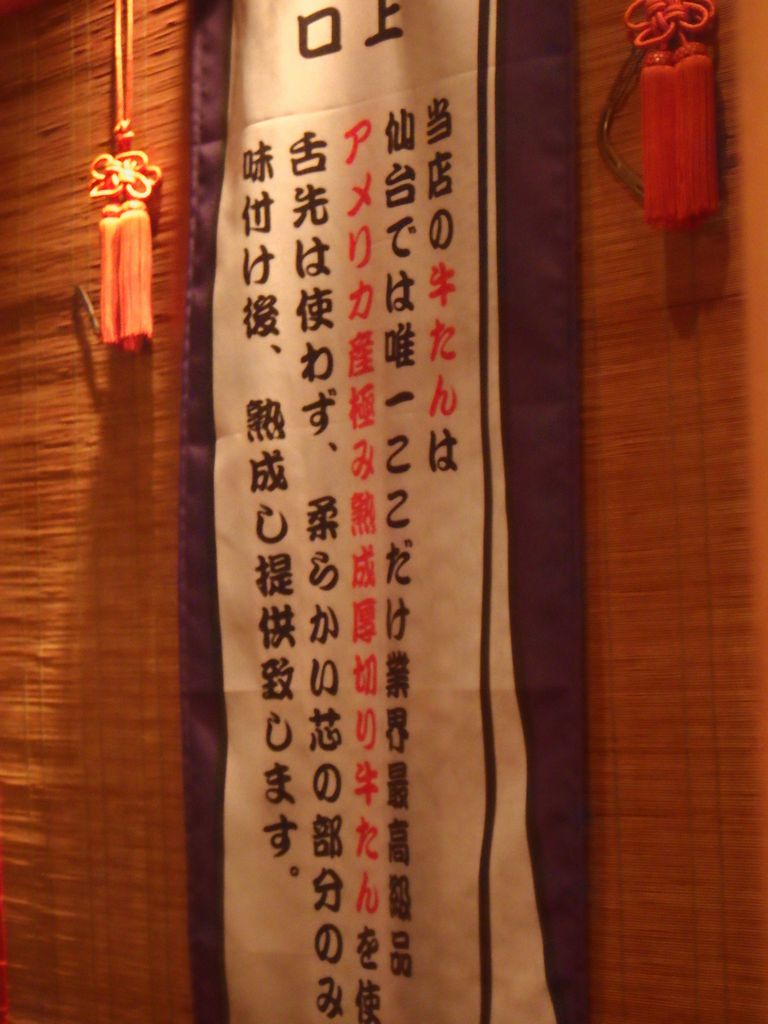 上
口
当店の牛たんは
仙台では唯一ここだけ業界最高級品
アメリカ産極み熟成厚切り牛たんを使
舌先は使わず、柔らかい芯の部分のみ
味付け後、熟成し提供致します。